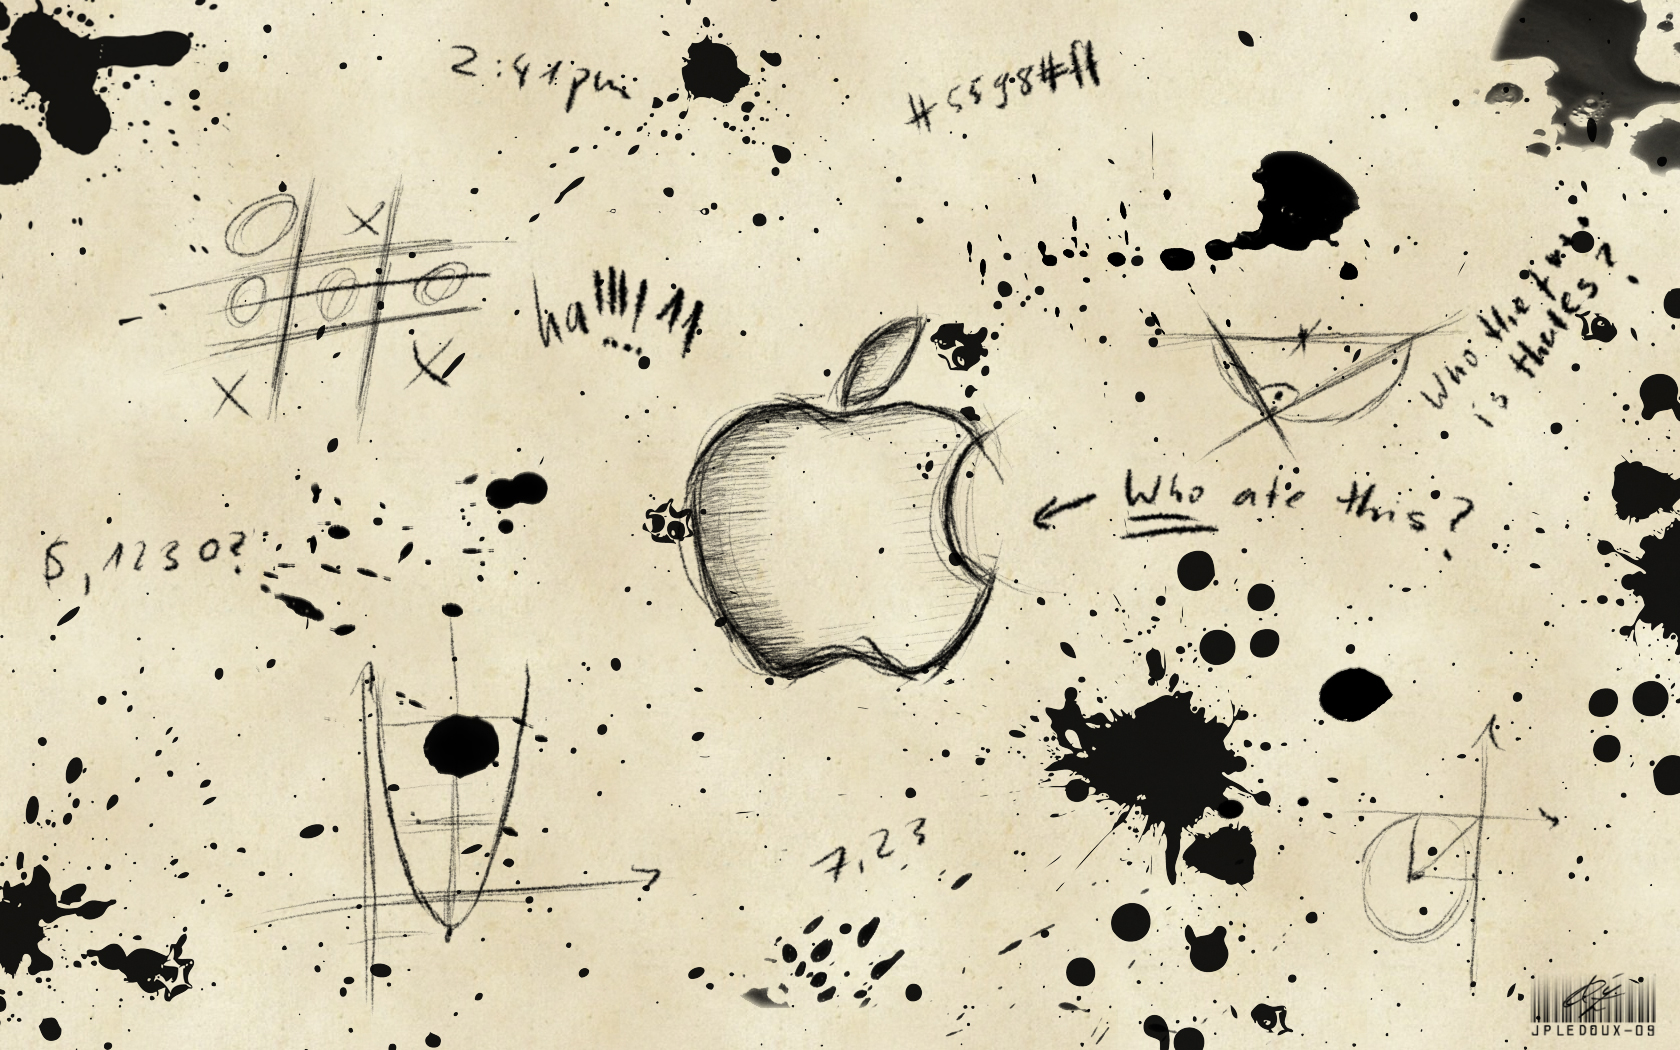 2:41pm
#5598#ff
ha!!!!!!
Who the f...
is thales?
Who ate this?
6,1230?
7,23
JPLEDOUX-09